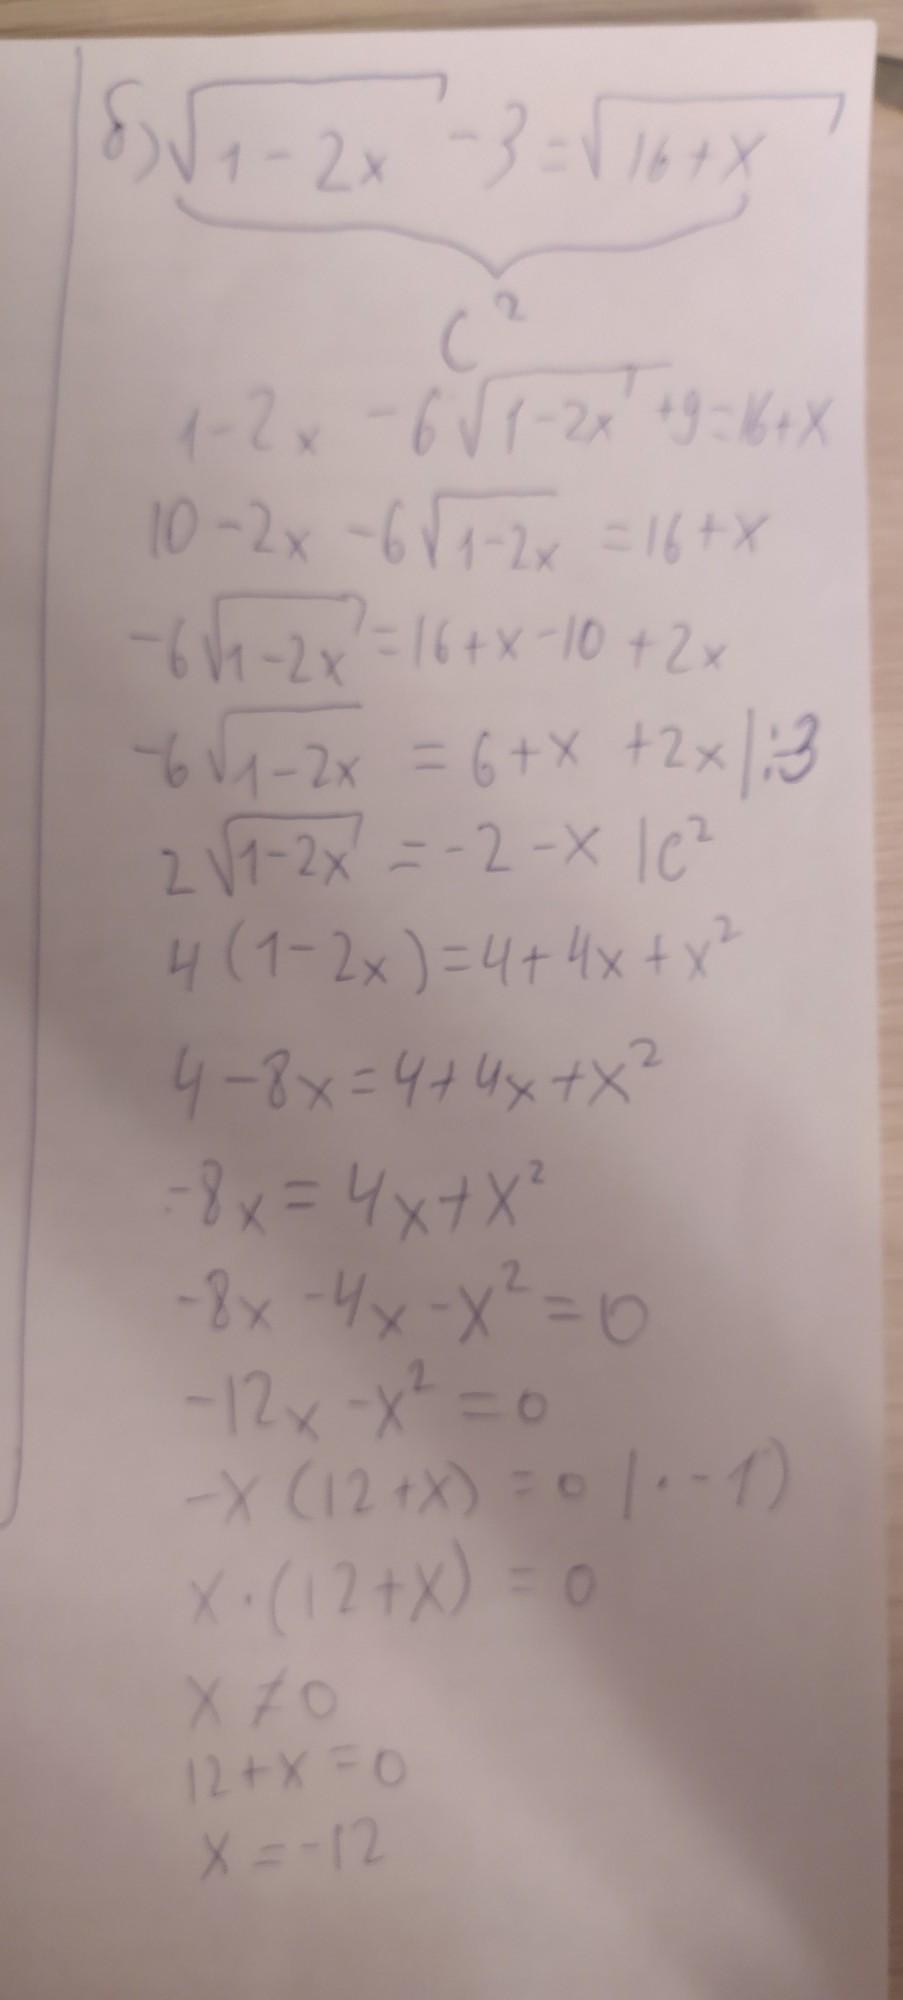 б) √(1-2x) - 3 = √(16+x)
c²
1-2x - 6√(1-2x) +9=16+x
10-2x - 6√(1-2x) = 16+x
-6√(1-2x) = 16+x-10+2x
-6√(1-2x) = 6+x +2x |:3
2√(1-2x) = -2-x |c²
4(1-2x)=4+4x+x²
4-8x=4+4x+x²
-8x=4x+x²
-8x-4x-x²=0
-12x-x²=0
-x(12+x)=0 |·-1)
x·(12+x)=0
x≠0
12+x=0
x=-12